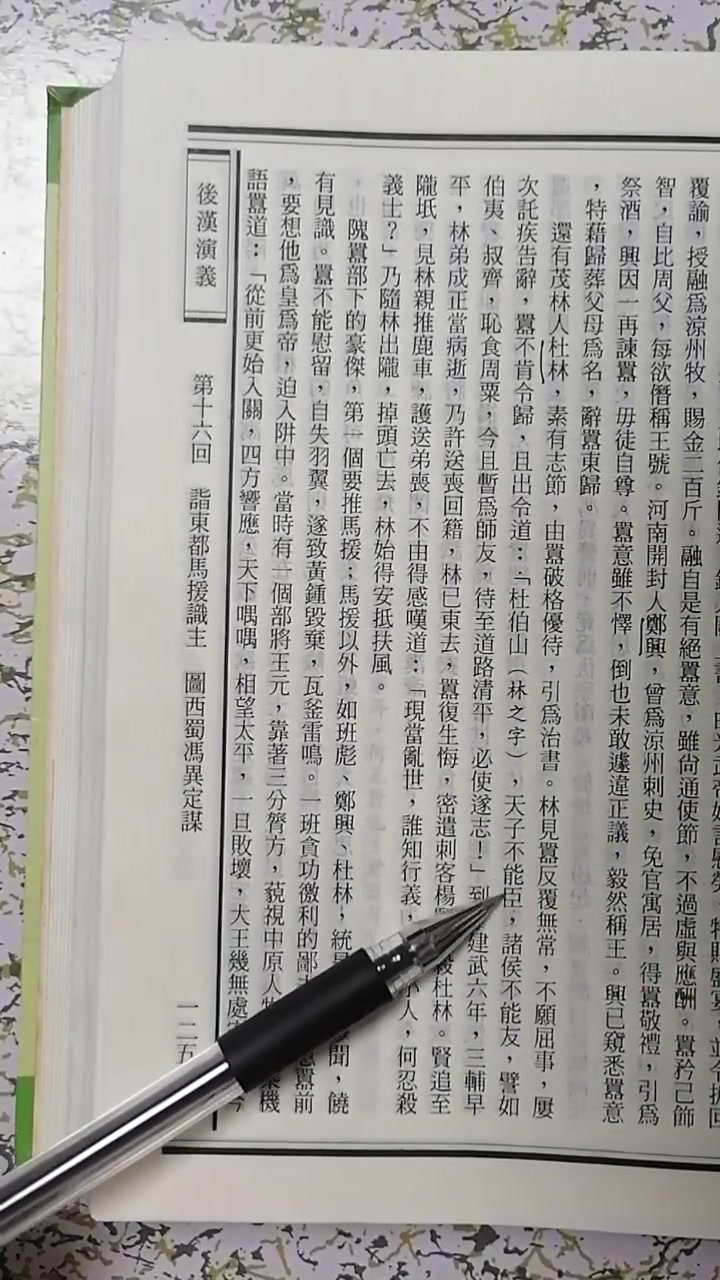 覆諭，授融爲涼州牧，賜金二百斤。融自是有絕囂意，雖尙通使節，不過虛與應酬。囂矜己飾
智，自比周父，每欲僭稱王號。河南開封人鄭興，曾爲涼州刺史，免官寓居，得囂敬禮，引爲
祭酒，興因一再諫囂，毋徒自尊。囂意雖不懌，倒也未敢遽違正議，毅然稱王。興已窺悉囂意
，特藉歸葬父母爲名，辭囂東歸。
還有茂林人杜林，素有志節，由囂破格優待，引爲治書。林見囂反覆無常，不願屈事，屢
次託疾告辭，囂不肯令歸，且出令道：「杜伯山（林之字），天子不能臣，諸侯不能友，譬如
伯夷、叔齊，恥食周粟，今且暫爲師友，待至道路清平，必使遂志！」到建武六年，三輔早
平，林弟成正當病逝，乃許送喪回籍，林已東去，囂復生悔，密遣刺客楊殺杜林。賢追至
隴坻，見林親推鹿車，護送弟喪，不由得感嘆道：「現當亂世，誰知行義，人，何忍殺
義士？」乃隨林出隴，掉頭亡去，林始得安抵扶風。
隗囂部下的豪傑，第一個要推馬援；馬援以外，如班彪、鄭興、杜林，統聞，饒
有見識。囂不能慰留，自失羽翼，遂致黃鍾毀棄，瓦釜雷鳴。一班貪功徼利的鄙囂前
，要想他爲皇爲帝，迫入阱中。當時有一個部將王元，靠著三分膂力，藐視中原人機
語囂道：「從前更始入關，四方響應，天下喁喁，相望太平，一旦敗壞，大王幾無處今
後漢演義
第十六回　詣東都馬援識主　圖西蜀馮異定謀
一二五